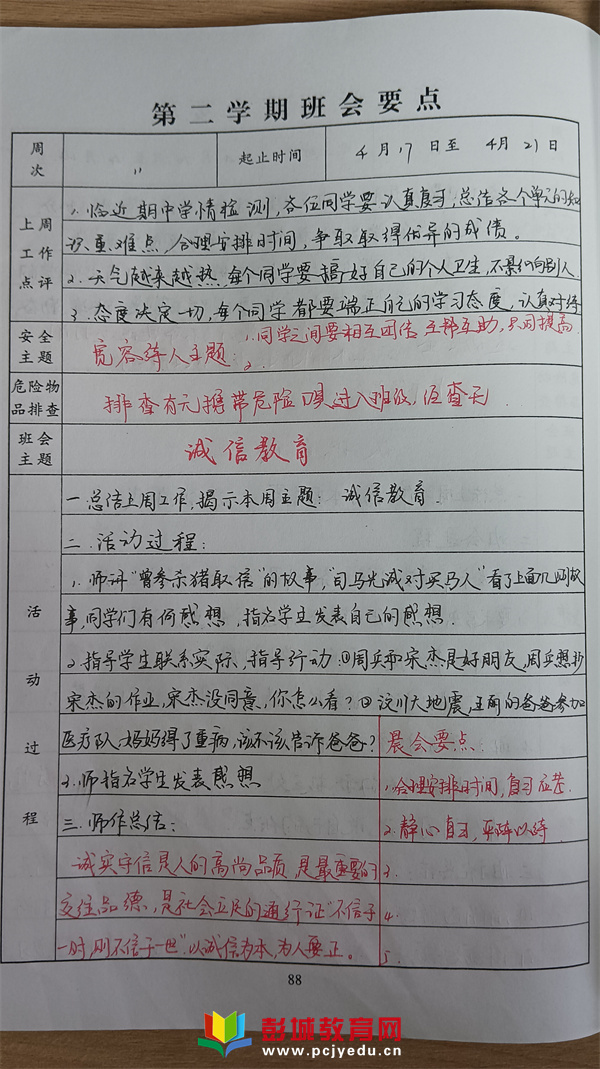 第二学期班会要点
周次 11 起止时间 4月17日至4月21日
上周工作点评
1. 临近期中学情检测,各位同学要认真复习,总结各个单元的知
识重难点,合理安排时间,争取取得优异的成绩。
2. 天气越来越热,每个同学要搞好自己的个人卫生,不影响别人
3. 态度决定一切,每个同学都要端正自己的学习态度,认真对待
安全主题
宽容待人主题:1.同学之间要相互团结,互帮互助,共同提高
2.
危险物品排查
排查有无携带危险 进入班级,经查无
班会主题
诚信教育
活动过程
一.总结上周工作,揭示本周主题: 诚信教育
二.活动过程:
1. 师讲"曾参杀猪取信"的故事,"司马光诚对买马人"看了上面几则故
事,同学们有何感想,指名学生发表自己的感想.
2. 指导学生联系实际,指导行动:①周兵和宋杰是好朋友,周兵想抄
宋杰的作业,宋杰没同意,你怎么看?②汶川大地震,王丽的爸爸参加
医疗队,妈妈得了重病,该不该告诉爸爸?
3. 师指名学生发表感想
三.师作总结:
诚实守信是人的高尚品质,是最重要的
交往品德,是社会立足的通行证"不信于
一时,则不信于一世"以诚信为本,为人要正。
晨会要点
1. 合理安排时间,复习应差.
2. 静心自习,严阵以待
3.
4.
5.
88
彭城教育网
www.pcjyedu.cn